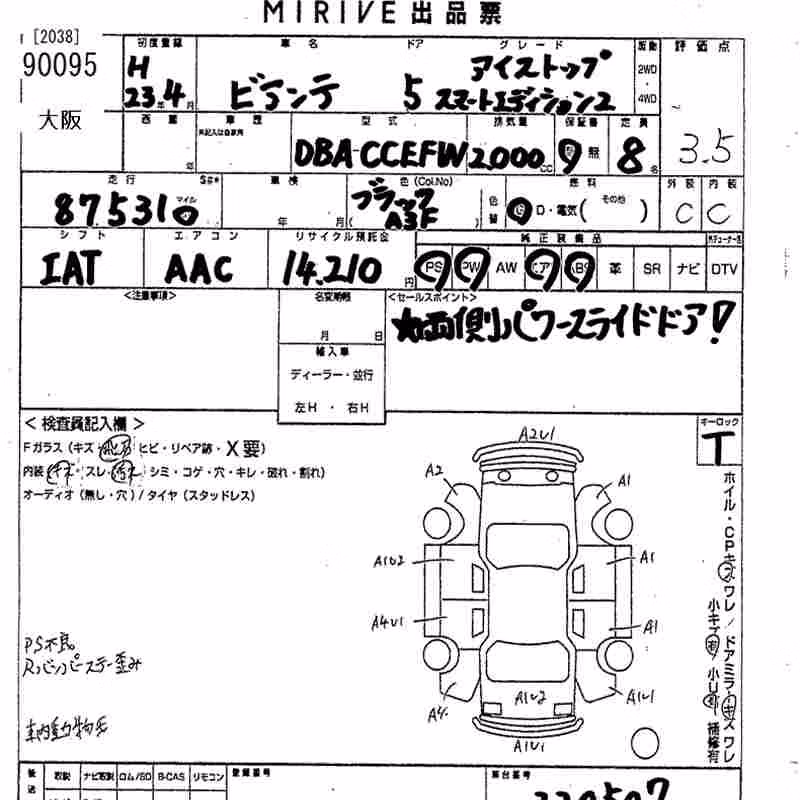 MIRIVE 出品票
[2038]
90095
大阪
初度登録 車名 ドア グレード 駆動 評価点
H 23年4月 ビアンテ 5 アイストップ
スマートエディション2
2WD
・
4WD
3.5
西暦 車歴 型式 排気量 保証書 定員
年 未記入は自家用 DBA-CCEFW 2,000cc 有 無 8名
走行 車検 色(Col,No) 色替 燃料 外装 内装
87,531 マイル 年 月 ブラック
( A3F ) G D・電気( その他 ) C C
シフト エアコン リサイクル預託金 純正装備品
IAT AAC 14,210円 PS PW AW エアB ABS 革 SR ナビ DTV
<注意事項> 名変期限 <セールスポイント>
月 日 ★両側パワースライドドア!
輸入車
ディーラー・並行
左H ・ 右H
<検査員記入欄> キーロック
T
Fガラス(キズ・飛石・ヒビ・リペア跡・X要)
内装(キズ・スレ・汚れ・シミ・コゲ・穴・キレ・破れ・割れ)
オーディオ(無し・穴)/タイヤ(スタッドレス)
A2U1
A2 A1
A1U2 A1
A4U1 A1
A4 A1U2 A1U1
A1U1
PS不良
Rバンパーステー歪み
車内動物毛
ホイル・CPキズワレ/ドアミラーキズワレ
小キズ有/小U有 補修有
後送 取説 ナビ取説 ロム/SD B-CAS リモコン 登録番号 車台番号